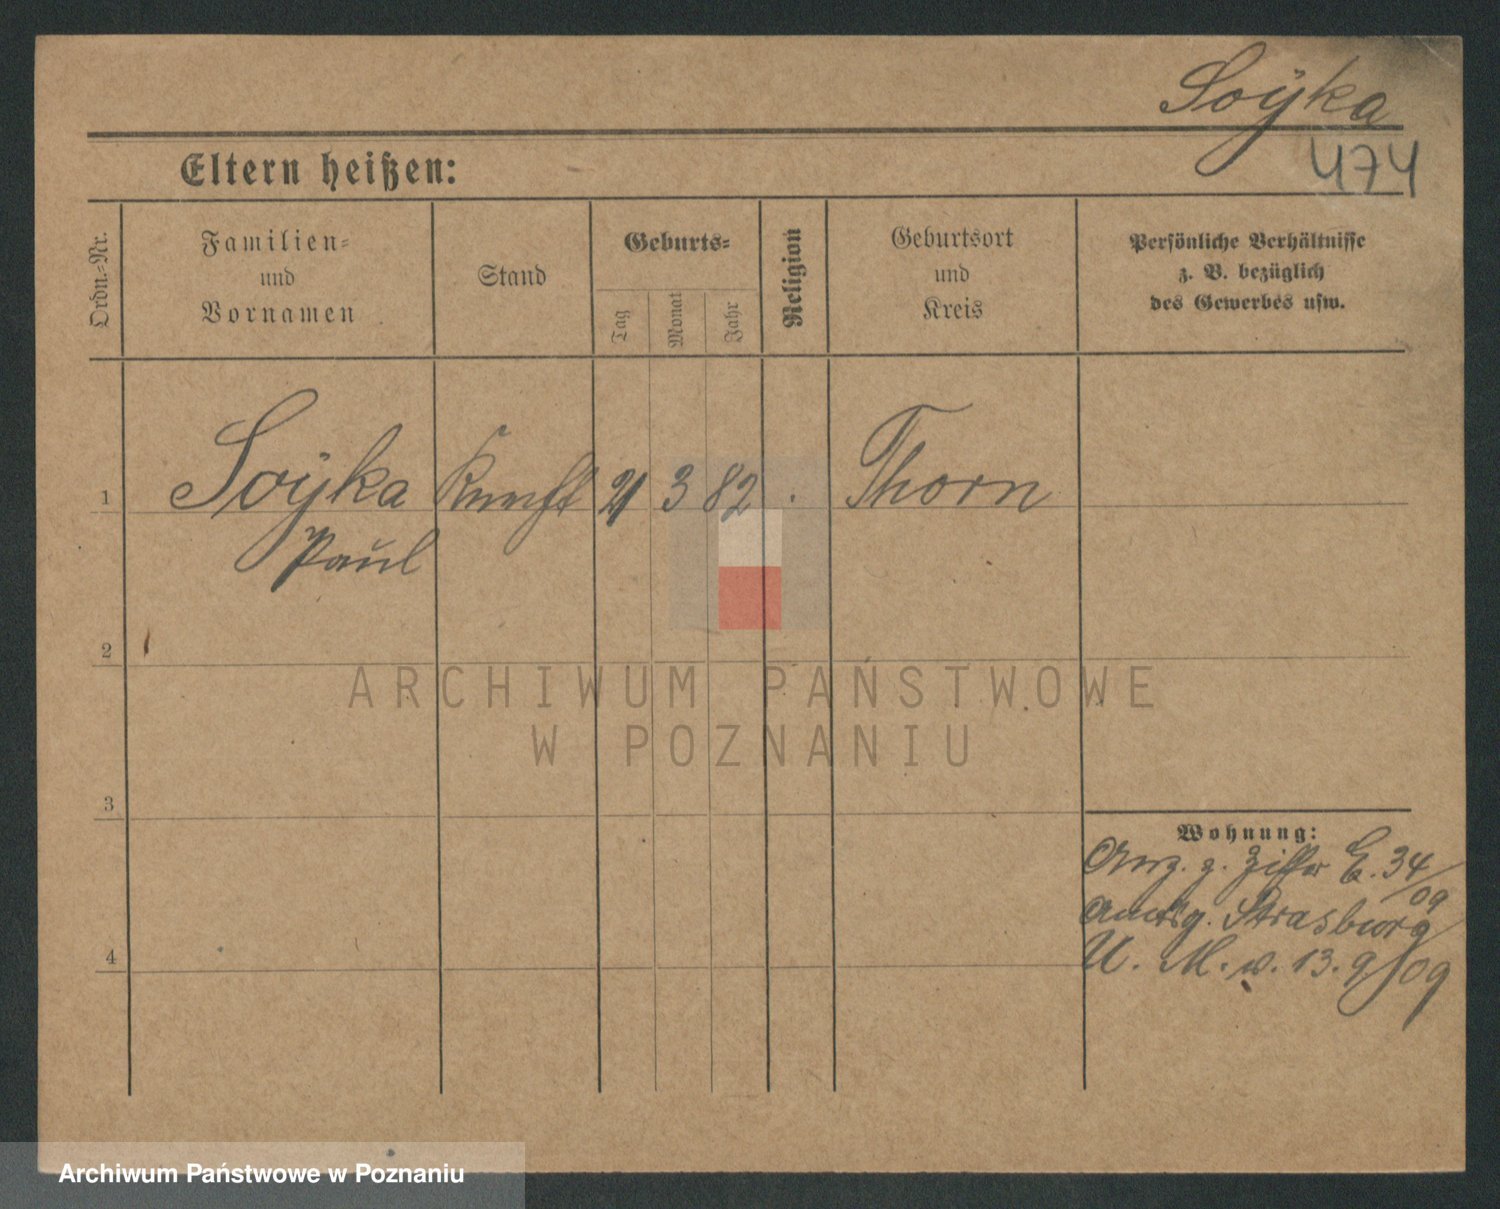 Soÿka
474
Eltern heißen:
Ordn.-Nr.
Familien- und Vornamen
Stand
Geburts-
Tag
Monat
Jahr
Religion
Geburtsort und Kreis
Persönliche Verhältnisse z. B. bezüglich des Gewerbes usw.
1 Soÿka Knecht 21 3 82 . Thorn
Paul
2
3
4
Wohnung:
Anz. z. Ziffer E. 34/09
Amtsg. Strasburg
U. M. v. 13.9/09
ARCHIWUM PAŃSTWOWE
W POZNANIU
Archiwum Państwowe w Poznaniu